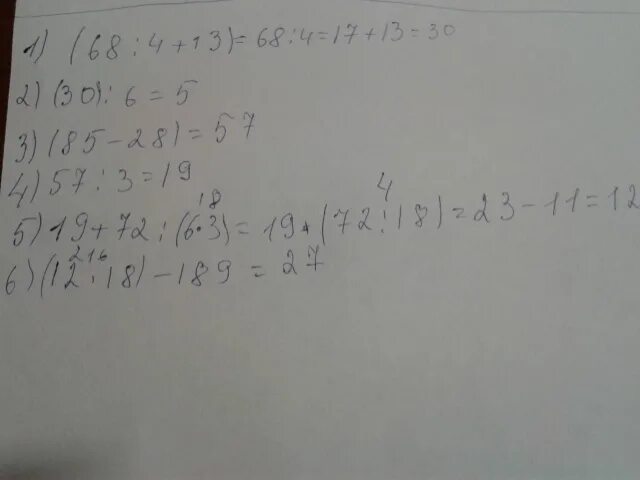 1) (68:4+13)=68:4=17+13=30
2) (30):6=5
3) (85-28)=57
4) 57:3=19
18 4
5) 19+72:(6·3)=19+(72:18)=23-11=12
216
6) (12:18)-189=27